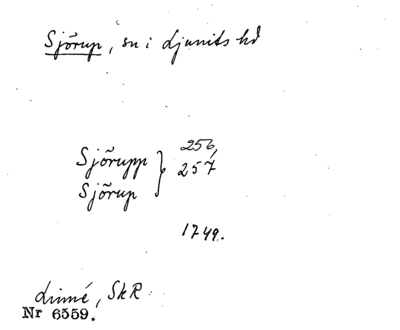 Sjörup, sn i Ljunits hd
Sjörupp } 256,
Sjörup } 257
1749.
Linné, SkR
Nr 6559.